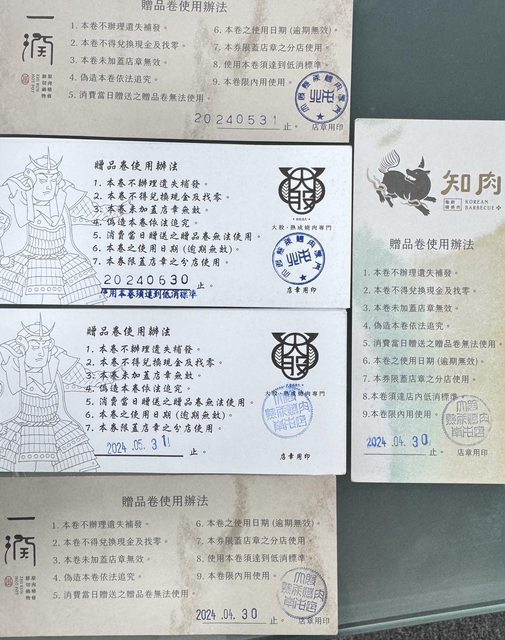 一潤
原肉燒物
贈品卷使用辦法
1. 本卷不辦理遺失補發。
2. 本卷不得兌換現金及找零。
3. 本卷未加蓋店章無效。
4. 偽造本卷依法追究。
5. 消費當日贈送之贈品卷無法使用。
6. 本卷之使用日期(逾期無效)。
7. 本券限蓋店章之分店使用。
8. 使用本卷須達到低消標準。
9. 本卷限內用使用。
20240531止。
店章用印
贈品卷使用辦法
1. 本卷不辦理遺失補發。
2. 本卷不得兌換現金及找零。
3. 本卷未加蓋店章無效。
4. 偽造本卷依法追究。
5. 消費當日贈送之贈品卷無法使用。
6. 本卷之使用日期(逾期無效)。
7. 本券限蓋店章之分店使用。
20240630止。
使用本卷須達到低消標準
大股
大股・熟成燒肉專門
店章用印
贈品卷使用辦法
1. 本卷不辦理遺失補發。
2. 本卷不得兌換現金及找零。
3. 本卷未加蓋店章無效。
4. 偽造本卷依法追究。
5. 消費當日贈送之贈品卷無法使用。
6. 本卷之使用日期(逾期無效)。
7. 本券限蓋店章之分店使用。
2024.05.31止。
大股
大股・熟成燒肉專門
店章用印
一潤
贈品卷使用辦法
1. 本卷不辦理遺失補發。
2. 本卷不得兌換現金及找零。
3. 本卷未加蓋店章無效。
4. 偽造本卷依法追究。
5. 消費當日贈送之贈品卷無法使用。
6. 本卷之使用日期(逾期無效)。
7. 本券限蓋店章之分店使用。
8. 使用本卷須達到低消標準。
9. 本卷限內用使用。
2024.04.30止。
店章用印
知肉
KOREAN
BARBECUE
贈品卷使用辦法
1. 本卷不辦理遺失補發。
2. 本卷不得兌換現金及找零。
3. 本卷未加蓋店章無效。
4. 偽造本卷依法追究。
5. 消費當日贈送之贈品卷無法使用。
6. 本卷之使用日期(逾期無效)。
7. 本券限蓋店章之分店使用。
8. 使用本券須達店內低消標準。
9. 本卷限內用使用。
2024.04.30止。
店章用印